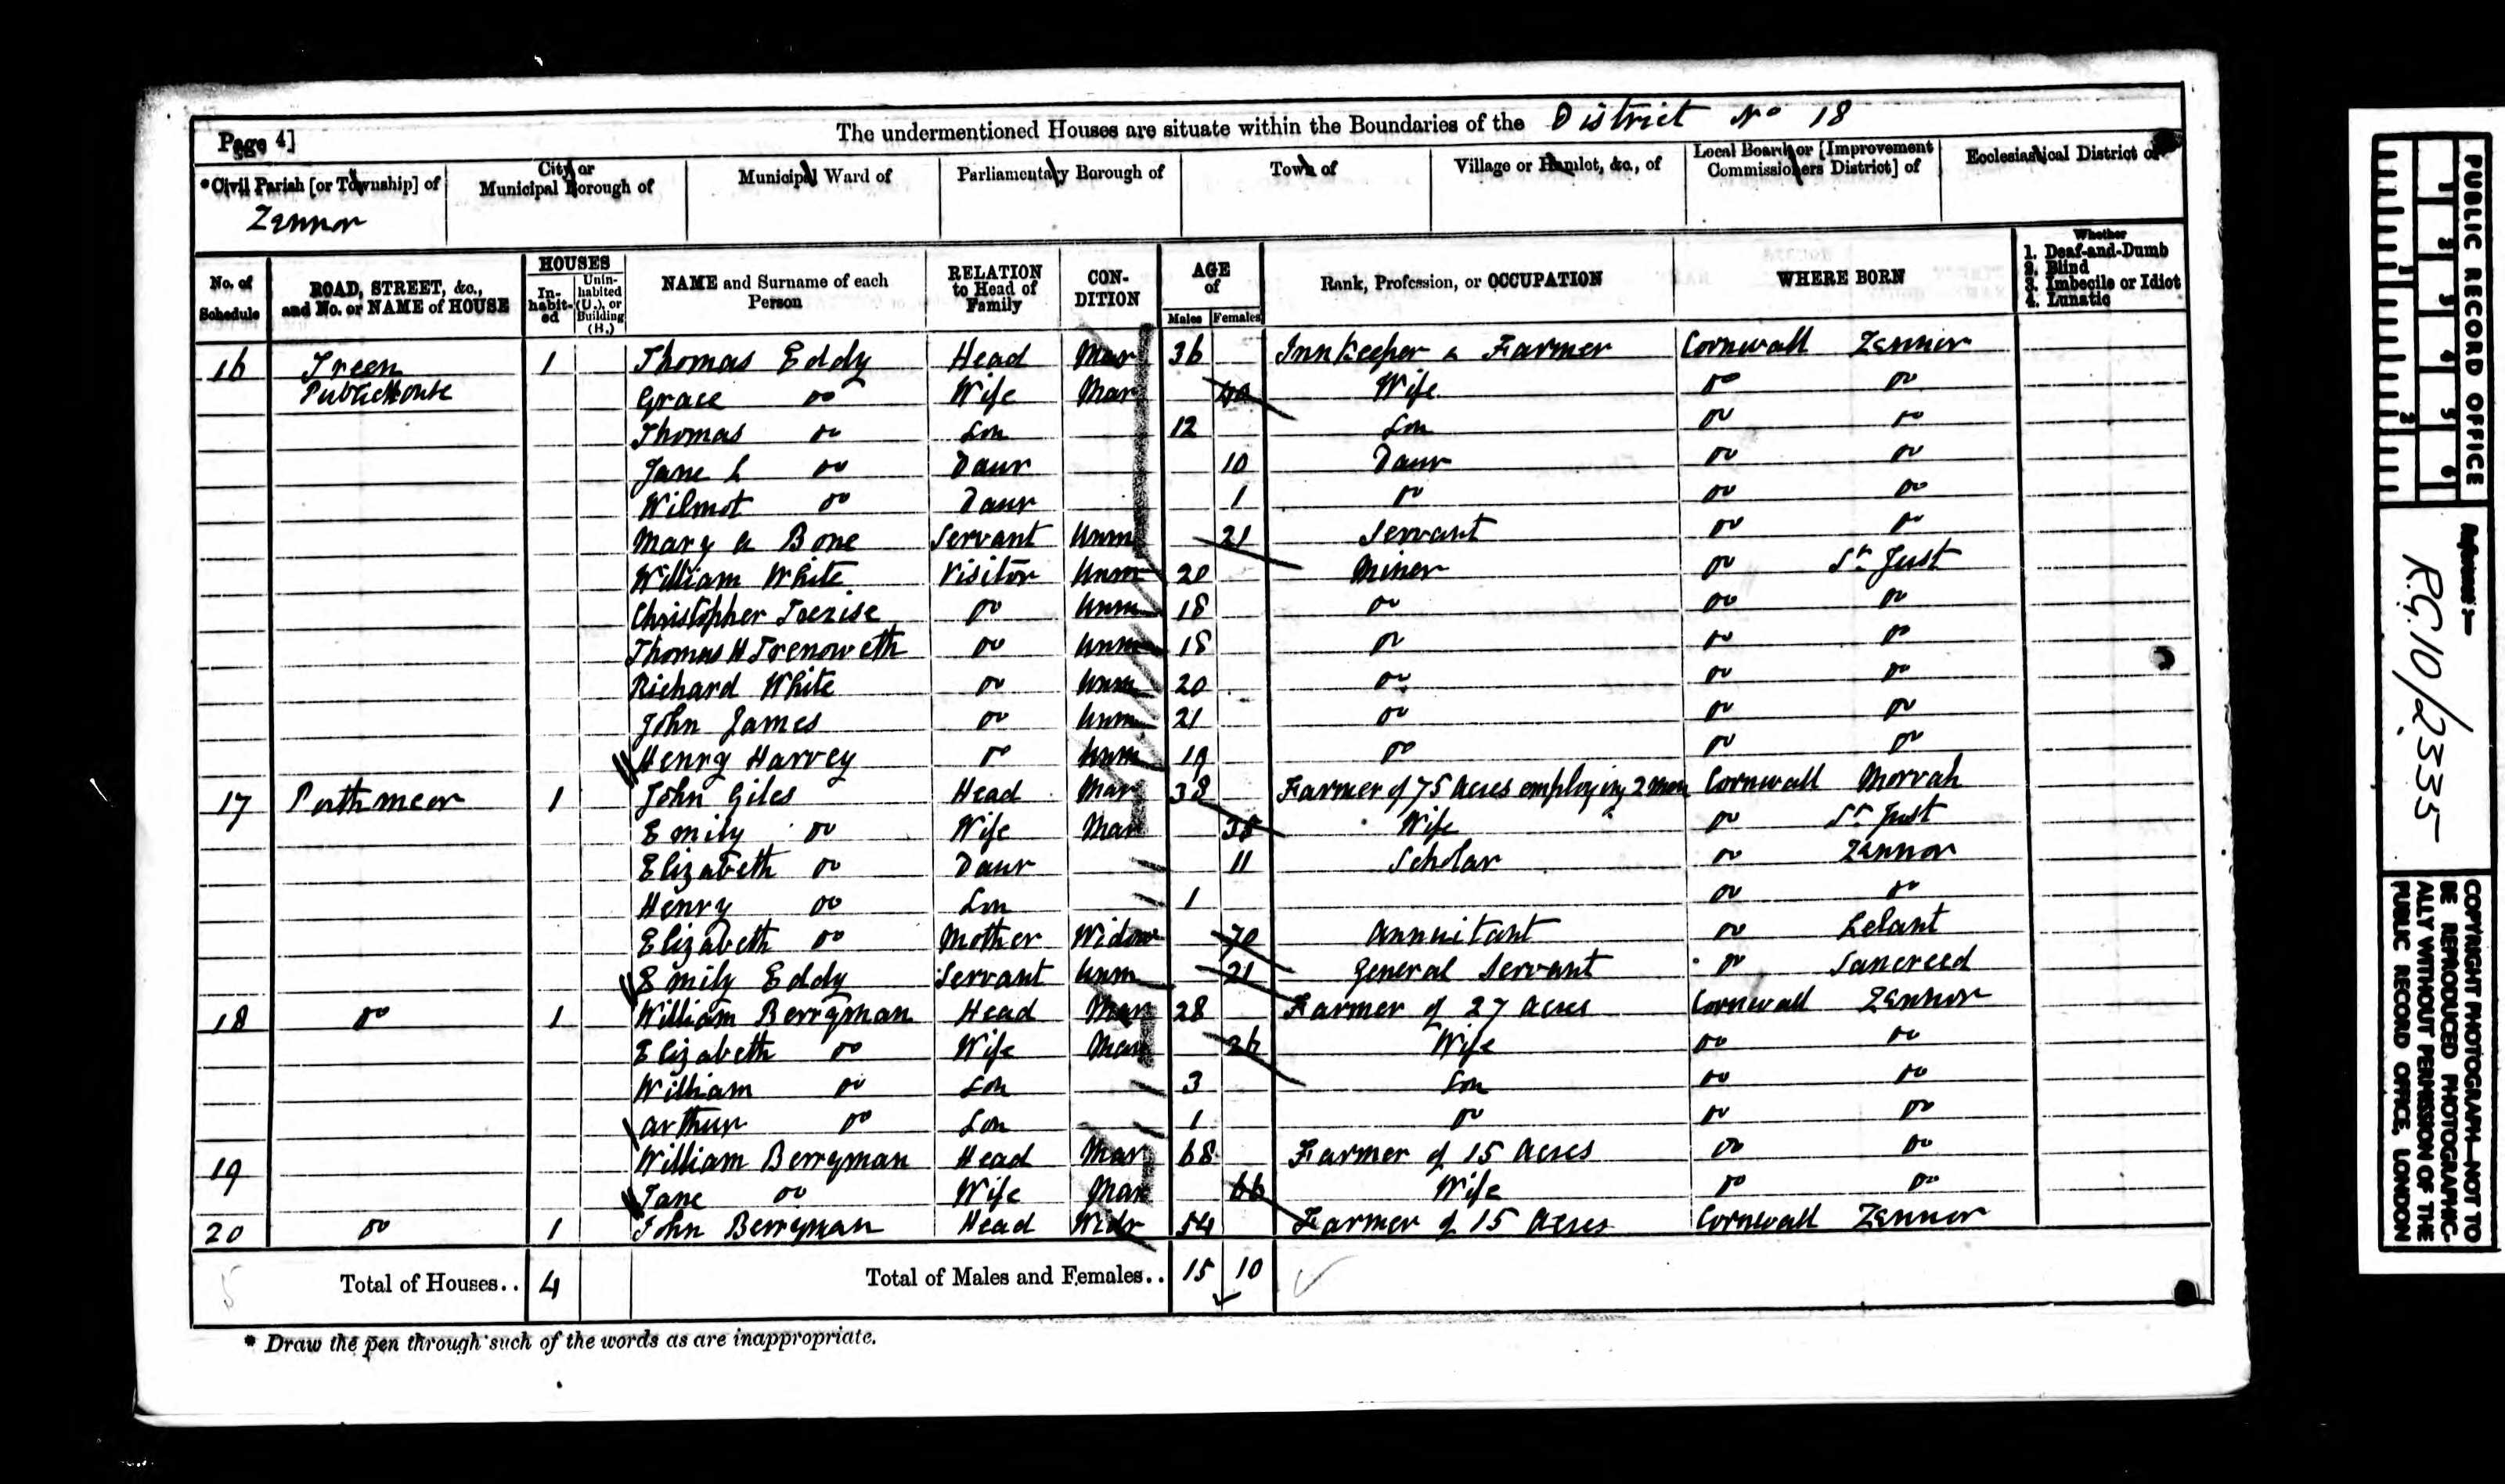 Page 4]
The undermentioned Houses are situate within the Boundaries of the District No 18
*Civil Parish [or Township] of
City or Municipal Borough of
Municipal Ward of
Parliamentary Borough of
Town of
Village or Hamlet, &c., of
Local Board, or [Improvement Commissioners District] of
Ecclesiastical District of
Zennor
No. of Schedule
ROAD, STREET, &c., and No. or NAME of HOUSE
HOUSES
In-habit-ed
Unin-habited (U.), or Building (B.)
NAME and Surname of each Person
RELATION to Head of Family
CON-DITION
AGE of
Males Females
Rank, Profession, or OCCUPATION
WHERE BORN
Whether
1. Deaf-and-Dumb
2. Blind
3. Imbecile or Idiot
4. Lunatic
16 Treen 1 Thomas Eddy Head Mar 36 Innkeeper & Farmer Cornwall Zennor
Public House Grace do Wife Mar 40 Wife do do
Thomas do Son 12 Son do do
Jane L do Daur 10 Daur do do
Wilmot do Daur 1 do do do
Mary A Bone Servant Unm 21 Servant do do
William White Visitor Unm 20 Miner do St Just
Christopher do Unm 18 do do do
Thomas H Trenoweth do Unm 18 do do do
Richard White do Unm 20 do do do
John James do Unm 21 do do do
Henry Harvey do Unm 19 do do do
17 Porthmeor 1 John Giles Head Mar 38 Farmer of 75 Acres employing 2 men Cornwall Morvah
Emily do Wife Mar 38 Wife do St Just
Elizabeth do Daur 11 Scholar do Zennor
Henry do Son 1 do do
Elizabeth do Mother Widow 70 Annuitant do Lelant
Emily Eddy Servant Unm 21 General Servant do Sancreed
18 do 1 William Berryman Head Mar 28 Farmer of 27 Acres Cornwall Zennor
Elizabeth do Wife Mar 26 Wife do do
William do Son 3 Son do do
Arthur do Son 1 do do do
19 William Berryman Head Mar 68 Farmer of 15 Acres do do
Jane do Wife Mar 66 Wife do do
20 do 1 John Berryman Head Widr 54 Farmer of 15 Acres Cornwall Zennor
Total of Houses.. 4 Total of Males and Females.. 15 10
* Draw the pen through such of the words as are inappropriate.
PUBLIC RECORD OFFICE
1 2 3 4 5 6
1 2
Reference :-
R.G. 10/2335
COPYRIGHT PHOTOGRAPH—NOT TO BE REPRODUCED PHOTOGRAPHIC-ALLY WITHOUT PERMISSION OF THE PUBLIC RECORD OFFICE, LONDON